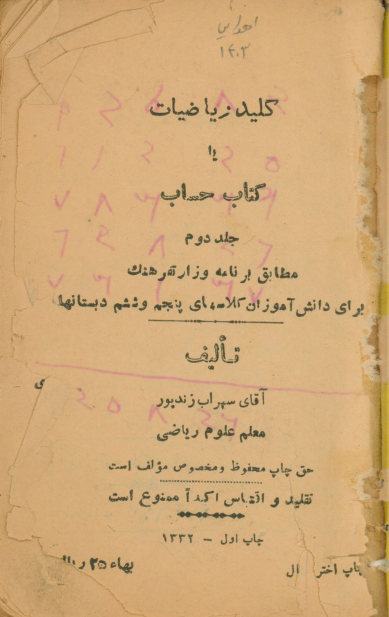 اهدایی
۱۴۰۳
کلید ریاضیات
یا
کتاب حساب
جلد دوم
مطابق برنامه وزارتفرهنک
برای دانش آموزان کلاسهای پنجم وششم دبستانها
تألیف
آقای سهراب زندپور
معلم علوم ریاضی
حق چاپ محفوظ ومخصوص مؤلف است
تقلید و اقتباس اکیداً ممنوع است
چاپ اول – ۱۳۳۲
بهاء ۲۵ ریال
چاپ اختر